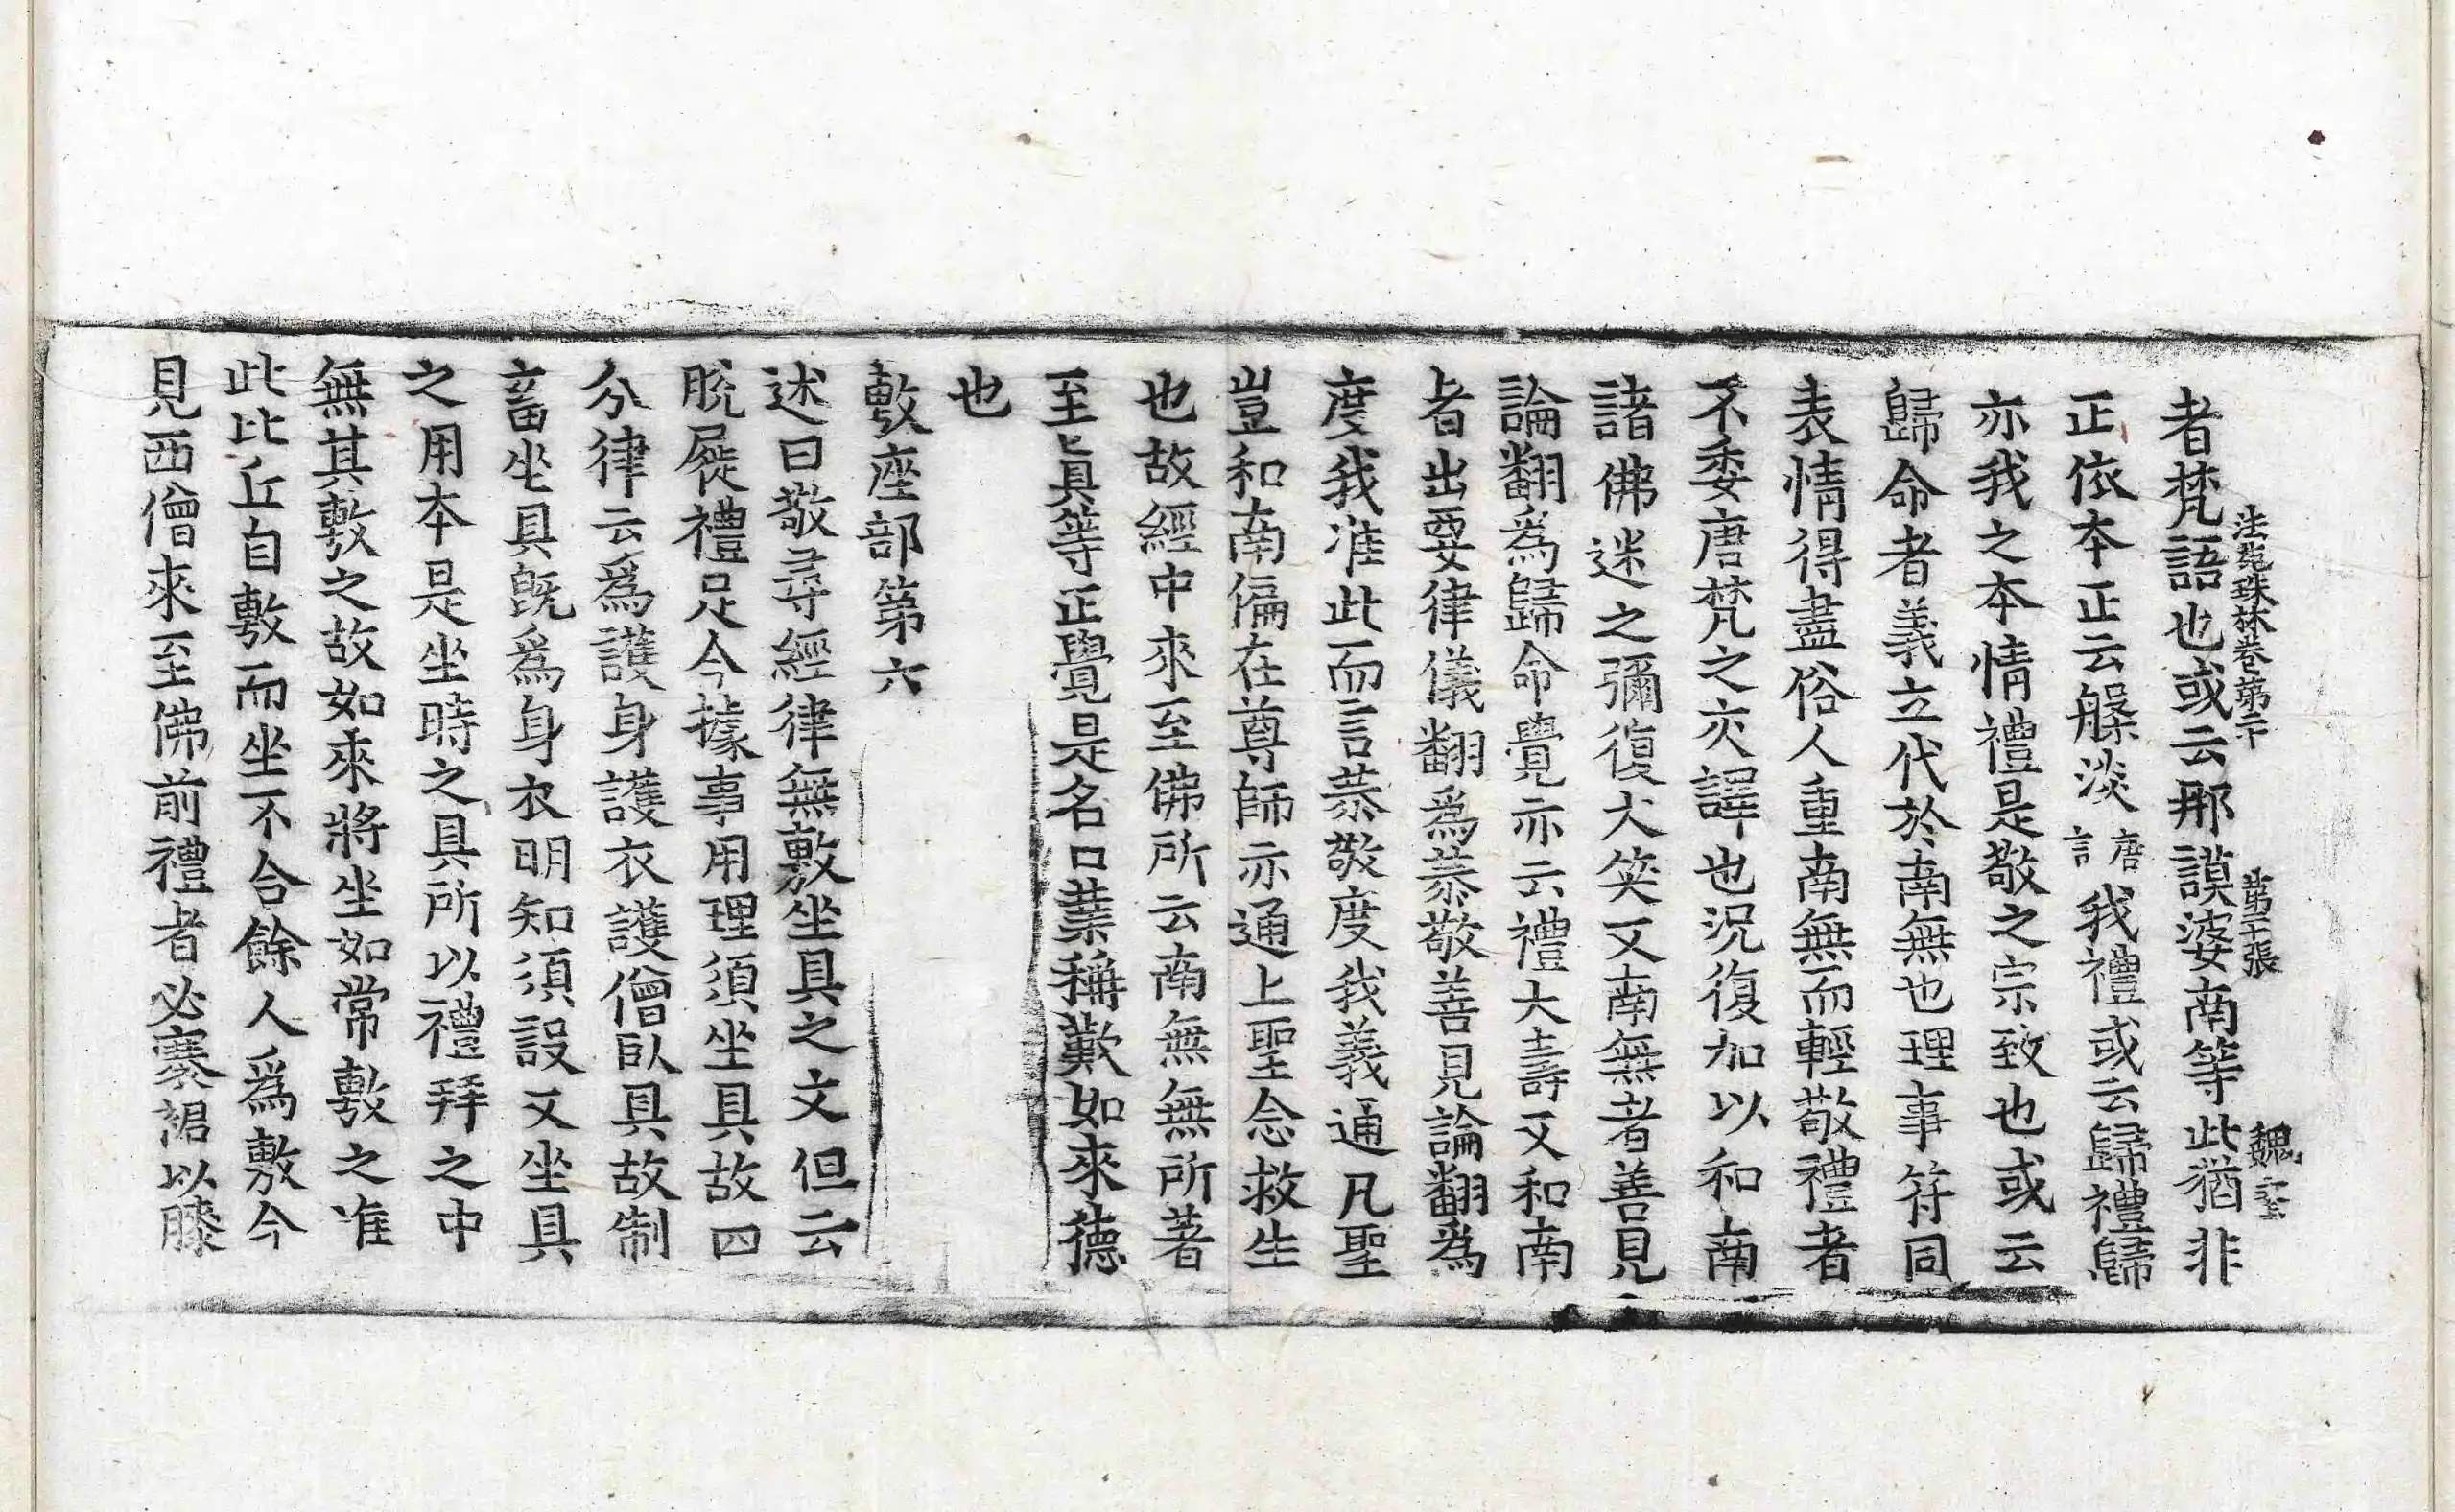 法苑珠林卷第二十 第二十張 魏
者梵語也或云那謨婆南等此猶非
正依本正云槃淡唐言我禮或云歸禮歸
亦我之本情禮是敬之宗致也或云
歸命者義立代於南無也理事符同
表情得盡俗人重南無而輕敬禮者
不委唐梵之交譯也況復加以和南
諸佛迷之彌復大笑又南無者善見
論翻為歸命覺亦云禮大壽又和南
者出要律儀翻為恭敬善見論翻為
度我准此而言恭敬度我義通凡聖
豈和南偏在尊師亦通上聖念救生
也故經中來至佛所云南無無所著
至真等正覺是名口業稱歎如來德
也
敷座部第六
述曰敬尋經律無敷坐具之文但云
脫屣禮足今據事用理須坐具故四
分律云為護身護衣護僧臥具故制
畜坐具既為身衣明知須設又坐具
之用本是坐時之具所以禮拜之中
無其敷之故如來將坐如常敷之准
此比丘自敷而坐不合餘人為敷今
見西僧來至佛前禮者必褰裙以膝